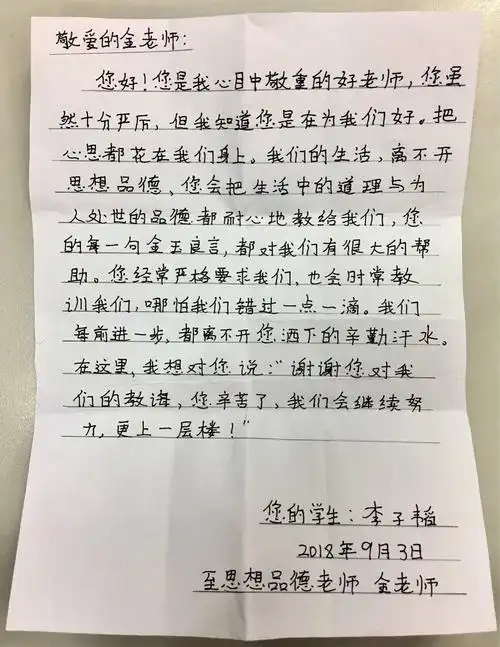 敬爱的金老师：
您好！您是我心目中敬重的好老师，您虽
然十分严厉，但我知道您是在为我们好。把
心思都花在我们身上。我们的生活，离不开
思想品德、您会把生活中的道理与为
人处世的品德都耐心地教给我们，您
的每一句金玉良言，都对我们有很大的帮
助。您经常严格要求我们，也会时常教
训我们，哪怕我们错过一点一滴。我们
每前进一步，都离不开您洒下的辛勤汗水。
在这里，我想对您说：“谢谢您对我
们的教诲，您辛苦了，我们会继续努
力，更上一层楼！”
您的学生：李子韬
2018年9月3日
至思想品德老师 金老师